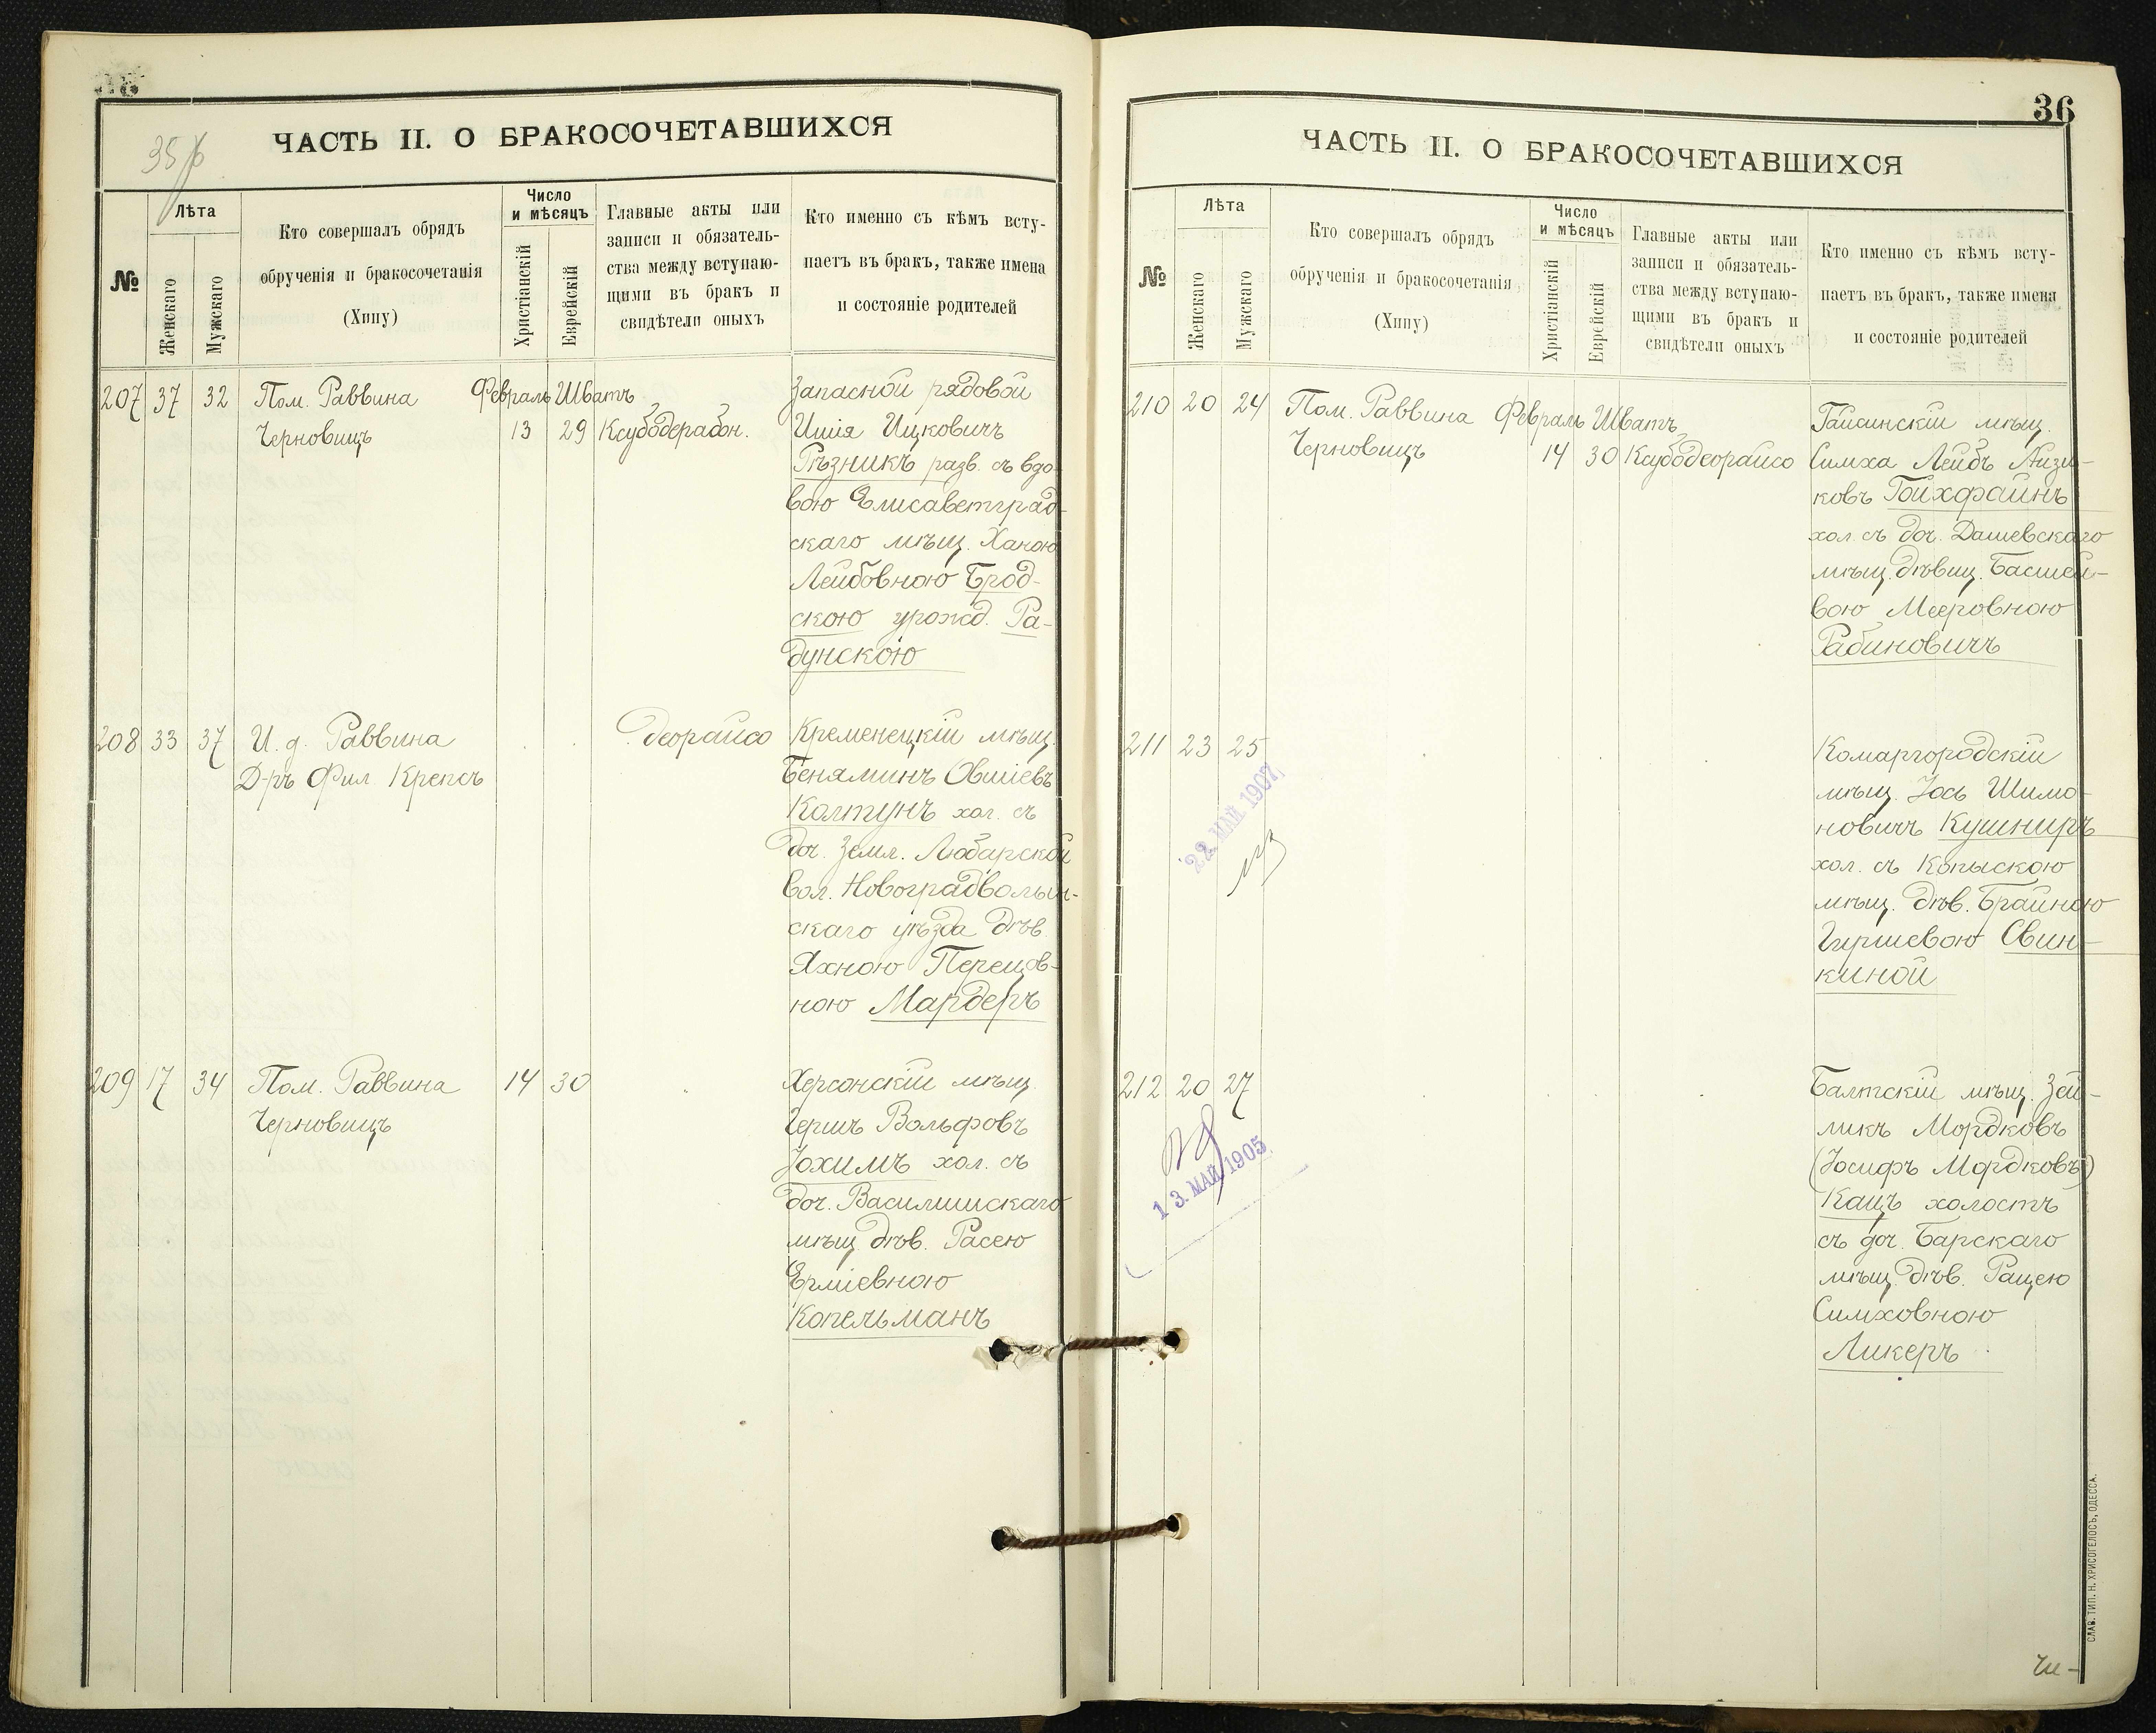 35 
ЧАСТЬ II. О БРАКОСОЧЕТАВШИХСЯ
№
Лѣта
Женскаго
Мужскаго
Кто совершалъ обрядъ
обрученія и бракосочетанія
(Хипу)
Число
и мѣсяцъ
Христіанскій
Еврейскій
Главные акты или
записи и обязатель-
ства между вступаю-
щими въ бракъ и
свидѣтели оныхъ
Кто именно съ кѣмъ всту-
паетъ въ бракъ, также имена
и состояніе родителей
207 37 32 Пом. Раввина Февраль Шватъ
Черновицъ 13 29 Ксубодерабон.
Запасной рядовой
Ишія Ицковичъ
Рѣзникъ разв. съ вдо-
вою Елисаветград-
скаго мѣщ. Ханою
Лейбовною Брод-
скою урожд. Ра-
дунскою
208 33 37 И. д. Раввина
Д-ръ Фил Крепсъ
Деорайсо
Кременецкій мѣщ.
Беняминъ Овшіевъ
Колтунъ хол. съ
доч. Земл. Любарской
вол. Новоградволын-
скаго уѣзда дѣв.
Яхною Перецов-
ною Мардеръ
209 17 34 Пом. Раввина 14 30
Черновицъ
Херсонскій мѣщ.
Гершъ Вольфовъ
Іохимъ хол. съ
доч. Василишскаго
мѣщ. дѣв. Расею
Ерліевною
Копельманъ
36
ЧАСТЬ II. О БРАКОСОЧЕТАВШИХСЯ
№
Лѣта
Женскаго
Мужскаго
Кто совершалъ обрядъ
обрученія и бракосочетанія
(Хипу)
Число
и мѣсяцъ
Христіанскій
Еврейскій
Главные акты или
записи и обязатель-
ства между вступаю-
щими въ бракъ и
свидѣтели оныхъ
Кто именно съ кѣмъ всту-
паетъ въ бракъ, также имена
и состояніе родителей
210 20 24 Пом. Раввина Февраль Шватъ
Черновицъ 14 30 Ксубодеорайсо
Гайсинскій мѣщ.
Симха Лейбъ Айзи-
ковъ Гойхфайнъ
хол. съ доч. Дашевскаго
мѣщ. дѣвиц. Басшей-
вою Мееровною
Рабиновичъ
211 23 25
22. МАЙ 1907
Комаргородскій
мѣщ. Іось Шимо-
новичъ Кушниръ
хол. съ Копыскою
мѣщ. дѣв. Брайною
Гиршевою Свин-
киной
212 20 27
13. МАЙ 1905
Балтскій мѣщ. Зей-
ликъ Мордковъ
(Іосифъ Мордковъ)
Кацъ холостъ
съ доч. Барскаго
мѣщ. дѣв. Рацею
Симховною
Ликеръ
СЛАВ. ТИП. Н. ХРИСОГЕЛОСЪ, ОДЕССА.